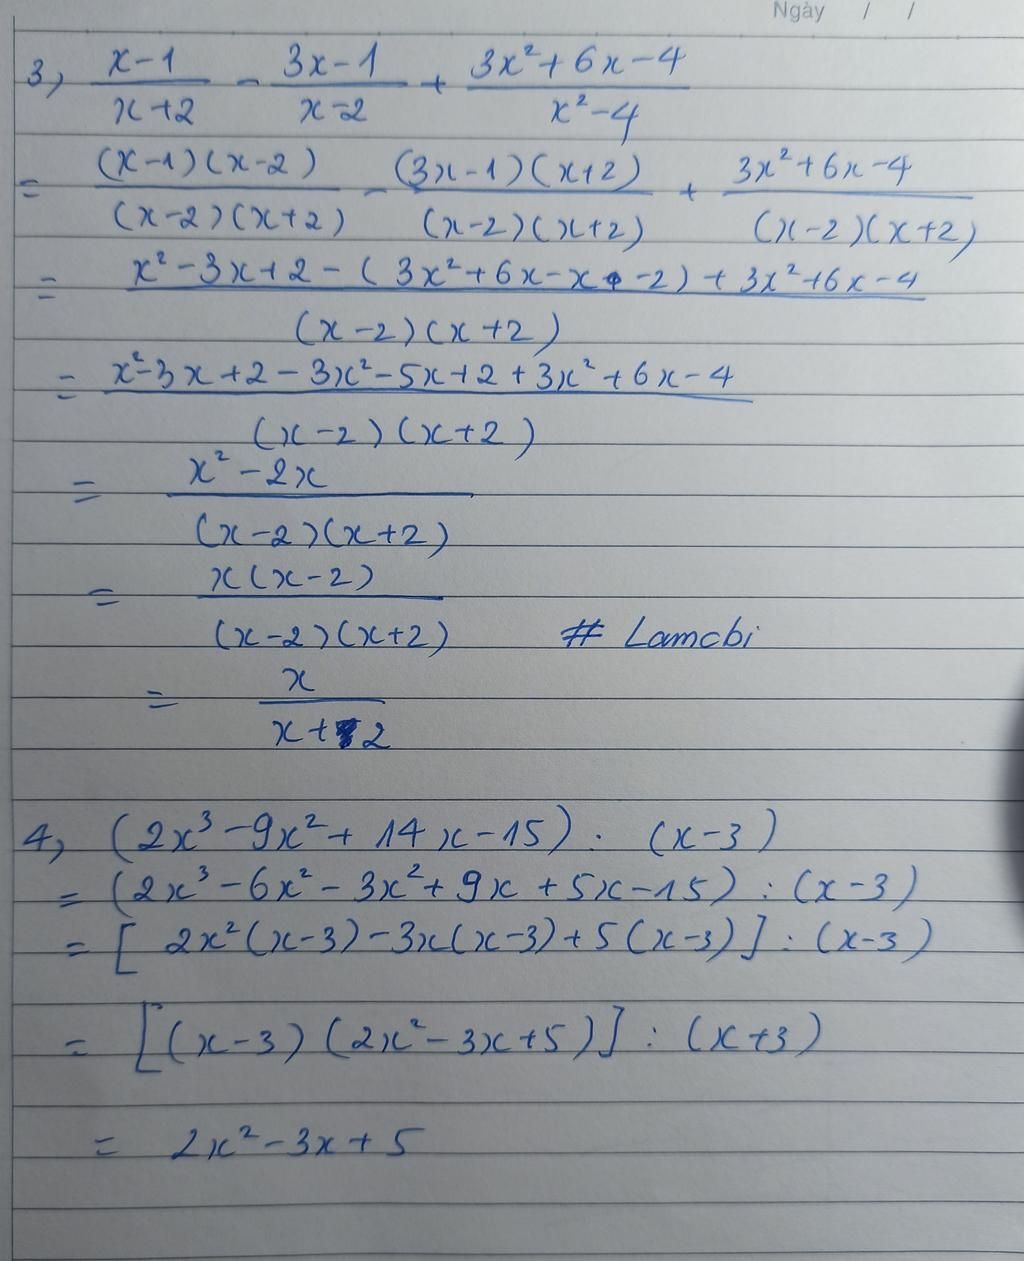 Ngày / /
3, (x-1)/(x+2) - (3x-1)/(x-2) + (3x²+6x-4)/(x²-4)
= ((x-1)(x-2))/((x-2)(x+2)) - ((3x-1)(x+2))/((x-2)(x+2)) + (3x²+6x-4)/((x-2)(x+2))
= (x²-3x+2-(3x²+6x-x-2)+3x²+6x-4)/((x-2)(x+2))
= (x²-3x+2-3x²-5x+2+3x²+6x-4)/((x-2)(x+2))
= (x²-2x)/((x-2)(x+2))
= (x(x-2))/((x-2)(x+2)) # Lamcbi
= x/(x+2)
4, (2x³-9x²+14x-15) . (x-3)
= (2x³-6x²-3x²+9x+5x-15) : (x-3)
= [2x²(x-3)-3x(x-3)+5(x-3)] : (x-3)
= [(x-3)(2x²-3x+5)] : (x+3)
= 2x²-3x+5